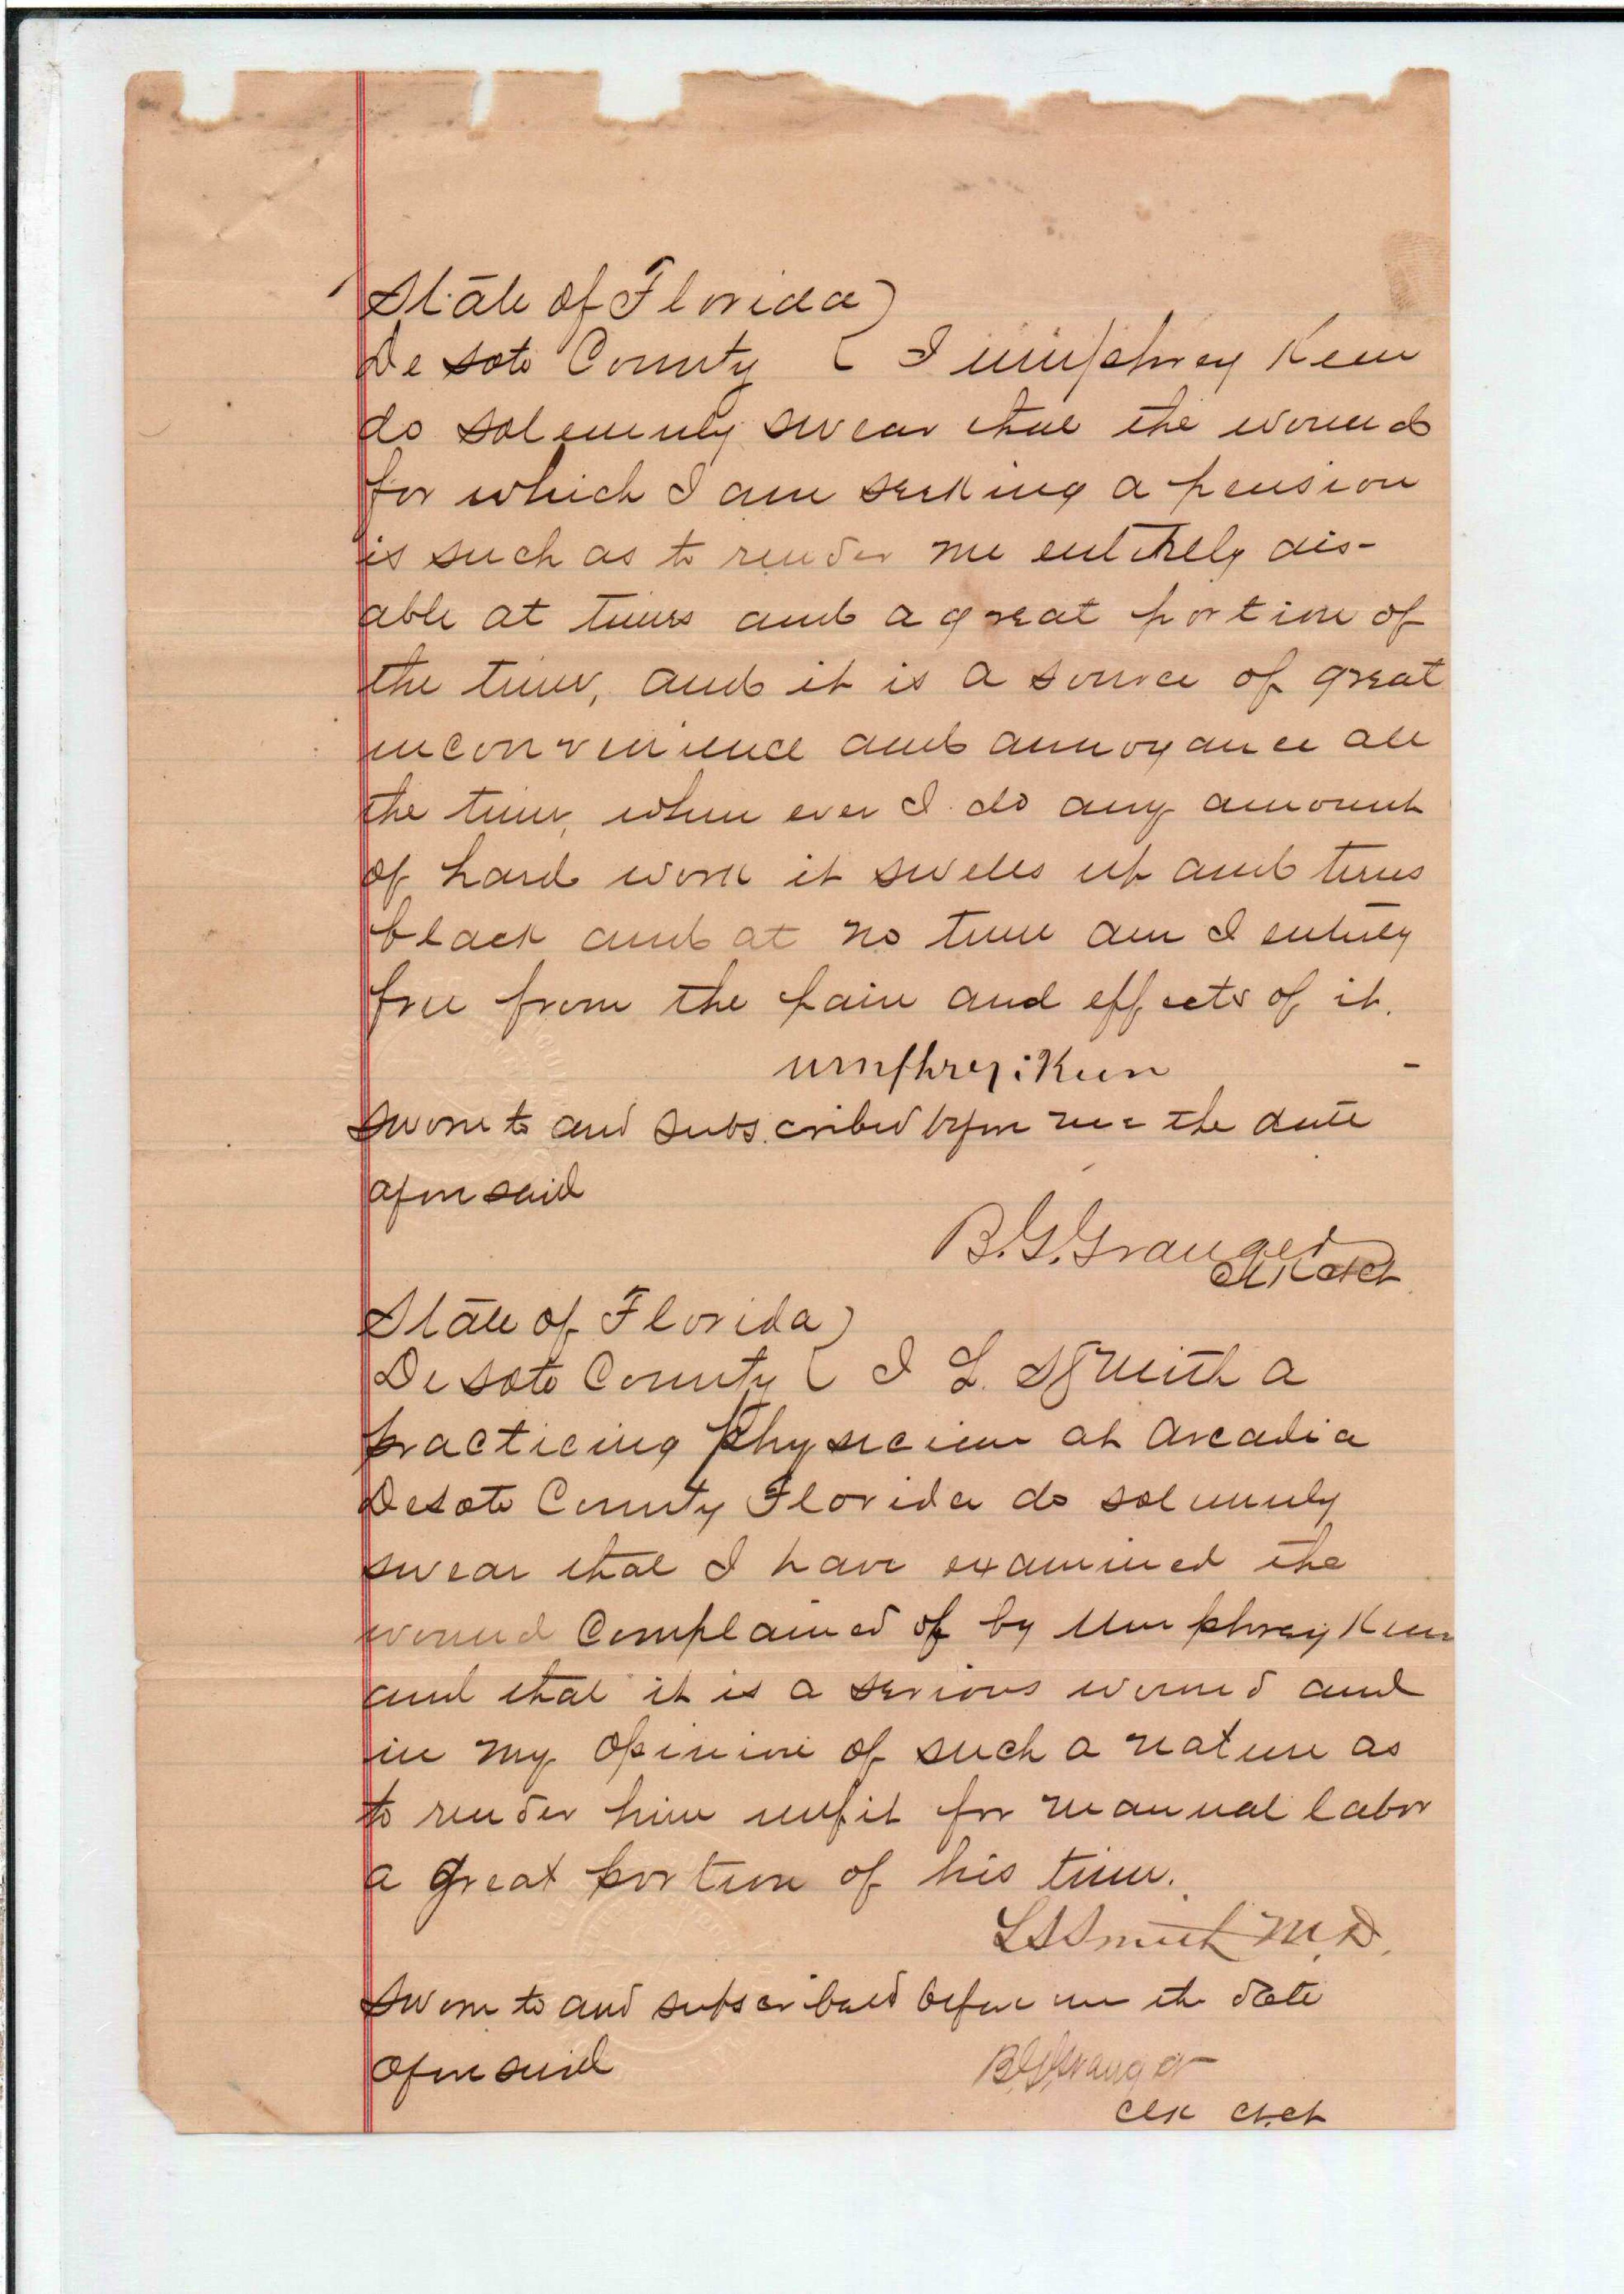 State of Florida )
De soto County ( I umphrey Keen
do solemnly swear that the wound
for which I am seeking a pension
is such as to render me entirely dis-
able at times and a great portion of
the time, and it is a source of great
inconvenience and annoyance all
the time, when ever I do any amount
of hard work it swells up and turns
black and at no time am I entirely
free from the pain and effects of it.
umphrey Keen
sworn to and subscribed before me the date
aforesaid
B. G. Granger
Clk Ct Ct
State of Florida )
De soto County ( I L. S Smith a
practicing Physician at Arcadia
Desoto County Florida do solemnly
swear that I have examined the
wound Complained of by Umphrey Keen
and that it is a serious wound and
in my opinion of such a nature as
to render him unfit for manual labor
a great portion of his time.
L S Smith M.D.
sworn to and subscribed before me the date
aforesaid
B. G. Granger
Clk Ct.Ct